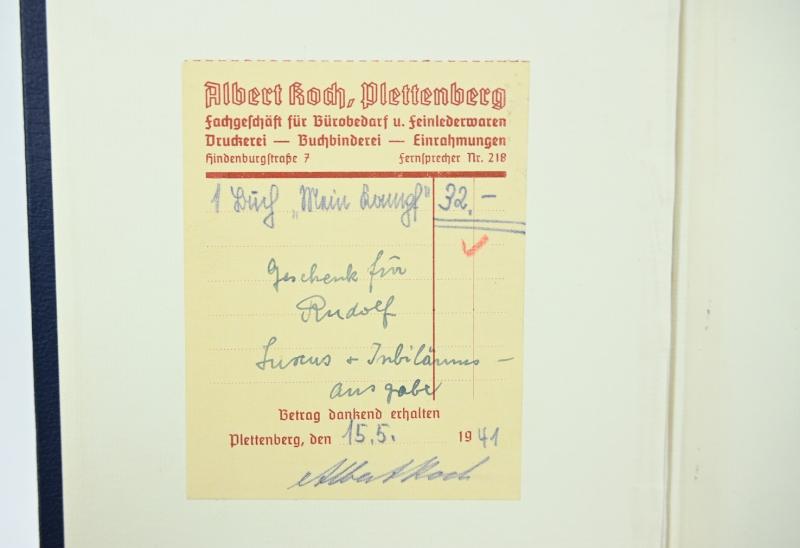 Albert Koch, Plettenberg
Fachgeschäft für Bürobedarf u. Feinlederwaren
Druckerei — Buchbinderei — Einrahmungen
Hindenburgstraße 7 Fernsprecher Nr. 218
1 Buch „Mein Kampf" 32,–
Geschenk für
Rudolf
Luxus + Jubiläums-
ausgabe
Betrag dankend erhalten
Plettenberg, den 15.5. 1941
Albert Koch